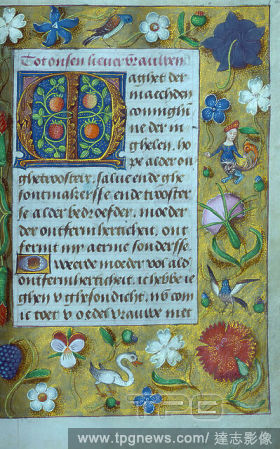 Tot onsen liever vrauwen
Maghet der
maechden
coninghin
ne der in
ghelen, ho
pe alder on
ghetrooster, salue ende ghe
sontmakersse ende trooster
se alder bedroefder, moeder
der ontfermherticheit, ont
fermt mij aerme sondersse.
O weerde moeder vol ald
ontfermherticheit, ic hebbe ie
ghen v ghesondicht, nv com
ic tot v o edel vrauwe met
TPG
www.tpgnews.com/ 達志影像